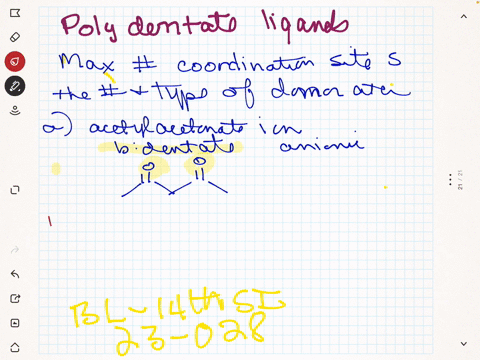 Polydentate ligands
Max # coordination sites
the # + type of donor atoms
a) acetylacetonate ion
bidentate anionic
O O
BL-14th SI
23-028
21 / 21